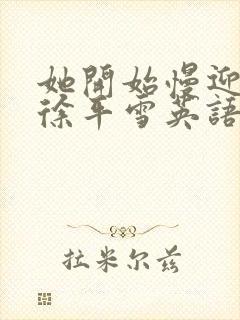 她開始慢迎
徐平雪英語
拉米尔兹